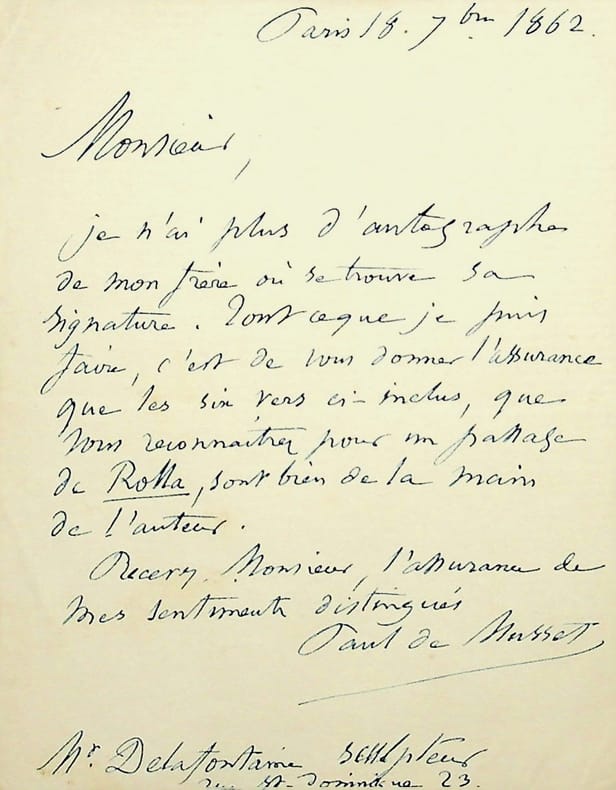 Paris 18. 7bre 1862.
Monsieur,
je n'ai plus d'autographe
de mon frère où se trouve sa
signature. Tout ce que je puis
faire, c'est de vous donner l'assurance
que les six vers ci-inclus, que
vous reconnaitrez pour un passage
de Rolla, sont bien de la main
de l'auteur.
Recevez, Monsieur, l'assurance de
mes sentiments distingués
Paul de Musset
Mr. Delafontaine sculpteur
rue St-Dominique 23.